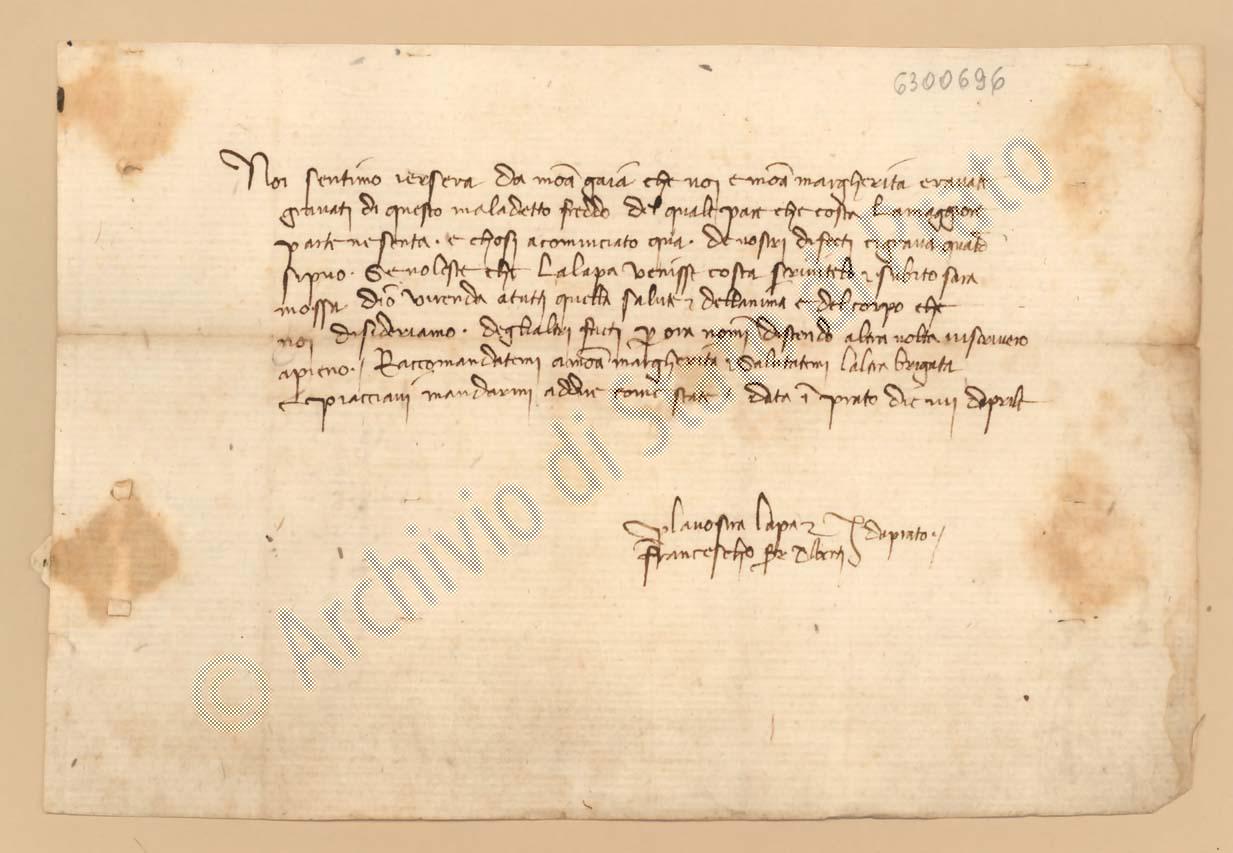 6300696
Noi sentimo iersera da mōa gaia che voi e mōa margherita eravate
gravati di questo maladetto freddo del quale pare che costa la maggiore
parte ne senta. e chosi a cominciato qua. de vostri difecti ci grava quāto
si puo. Se voleste che la lapa venisse costa scrivetelo e subito sara
mossa dio vi renda a tutti quella salute e dellanima e del corpo che
noi disideriamo. degli altri fati per ora nomi distendo altra volta vi scrivero
apieno. Raccomandatemi a mōa margherita e Salutatemi laltra brigata
e piacciavi mandarmi a come state data ī prato die iiii daprile
la vostra lapa e
francescho da prato.
© Archivio di Stato di Prato